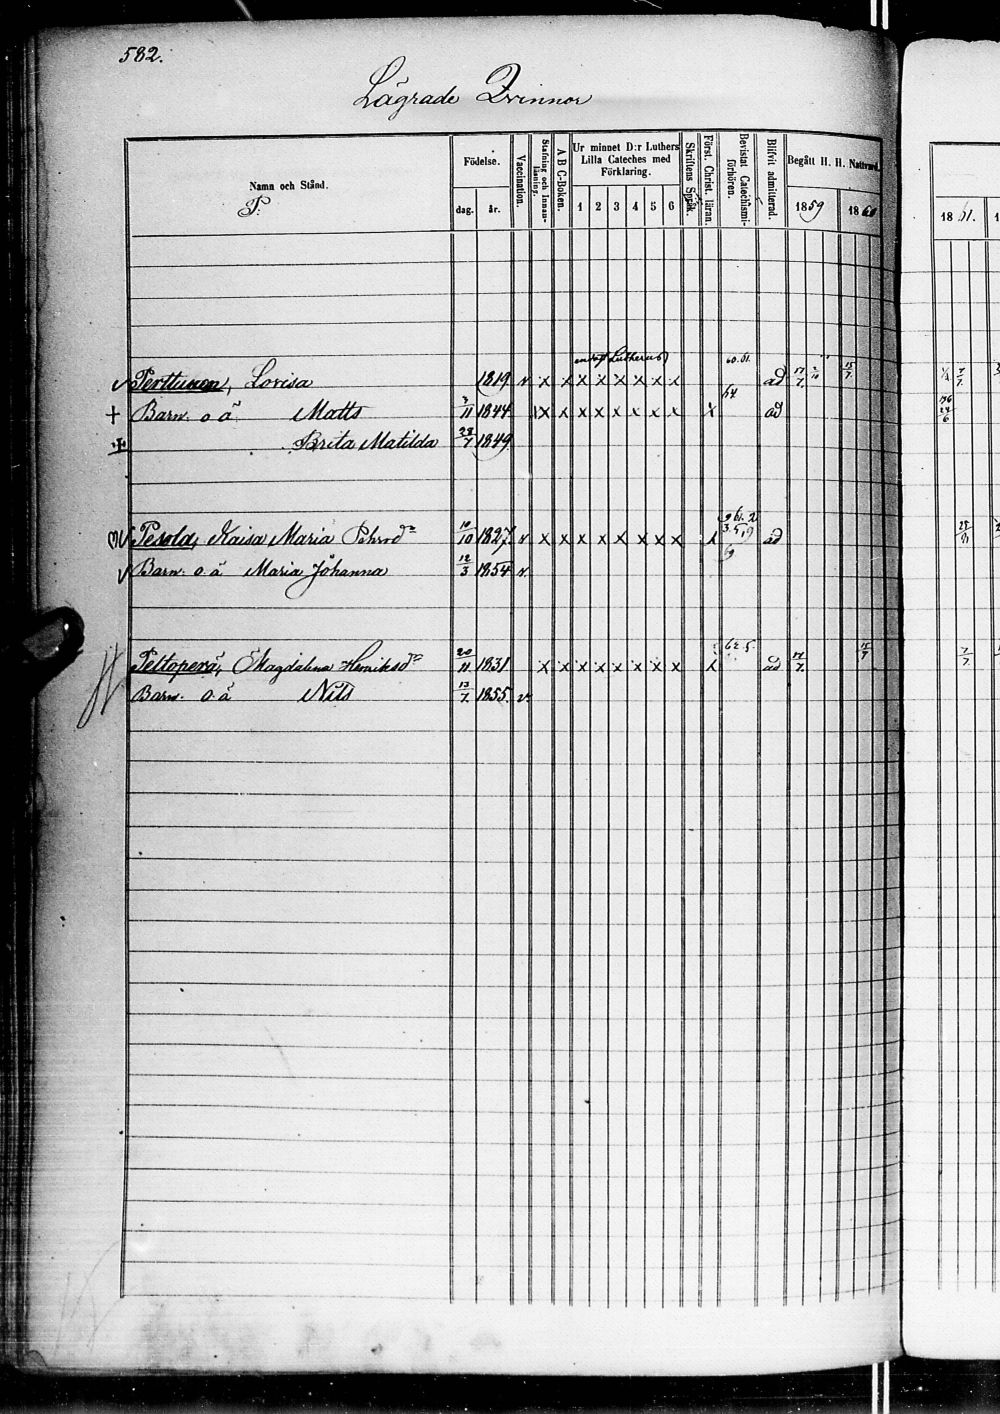 582.
Lägrade Qvinnor
Namn och Stånd.
P.
Födelse.
dag. år.
Vaccination.
Stafning och Innanläsning.
A B C-Boken.
Ur minnet D:r Luthers
Lilla Cateches med
Förklaring.
1 2 3 4 5 6
Skriftens Språk.
Först. Christ. läran.
Bevistat Catechismiförhören.
Blifvit admitterad.
Begått H. H. Nattvard.
1859 1860
1861.
Lutherus 60.61.
Perttunen, Lovisa 1819 v x x x x x x x x ad 17/7. 15/7. 7/7.
64
Barn. o. ä Matts 3/11 1844 x x x x x x x x x ad
Brita Matilda 28/7 1849
Pesola, Kaisa Maria Pehrsdr 10/10 1827 v x x x x x x x x x ad
69
Barn. o. ä Maria Johanna 12/3 1854 v.
62.5.
Peltoperä, Magdalena Henriksdr 20/11 1831 x x x x x x x x x ad 17/7. 15/7 7/7
Barn. o. ä Nils 13/7. 1855. v.